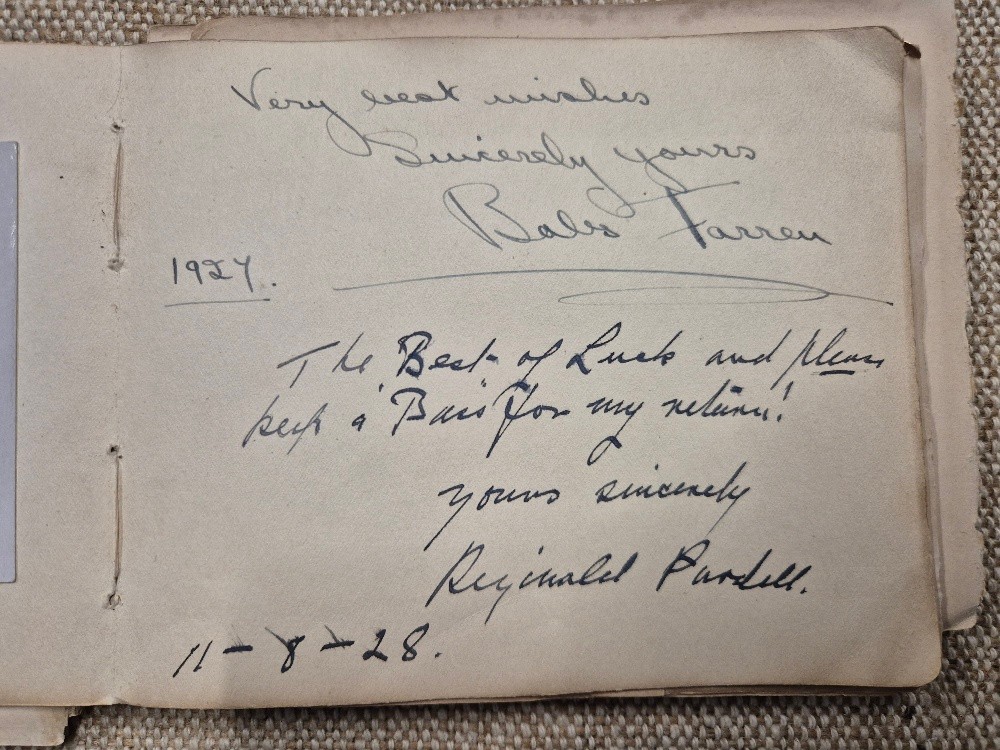 Very best wishes
Sincerely yours
Babs Farren
1927.
The "Best" of Luck and please
keep a "Bass" for my return!
yours sincerely
Reginald Purdell.
11-8-28.